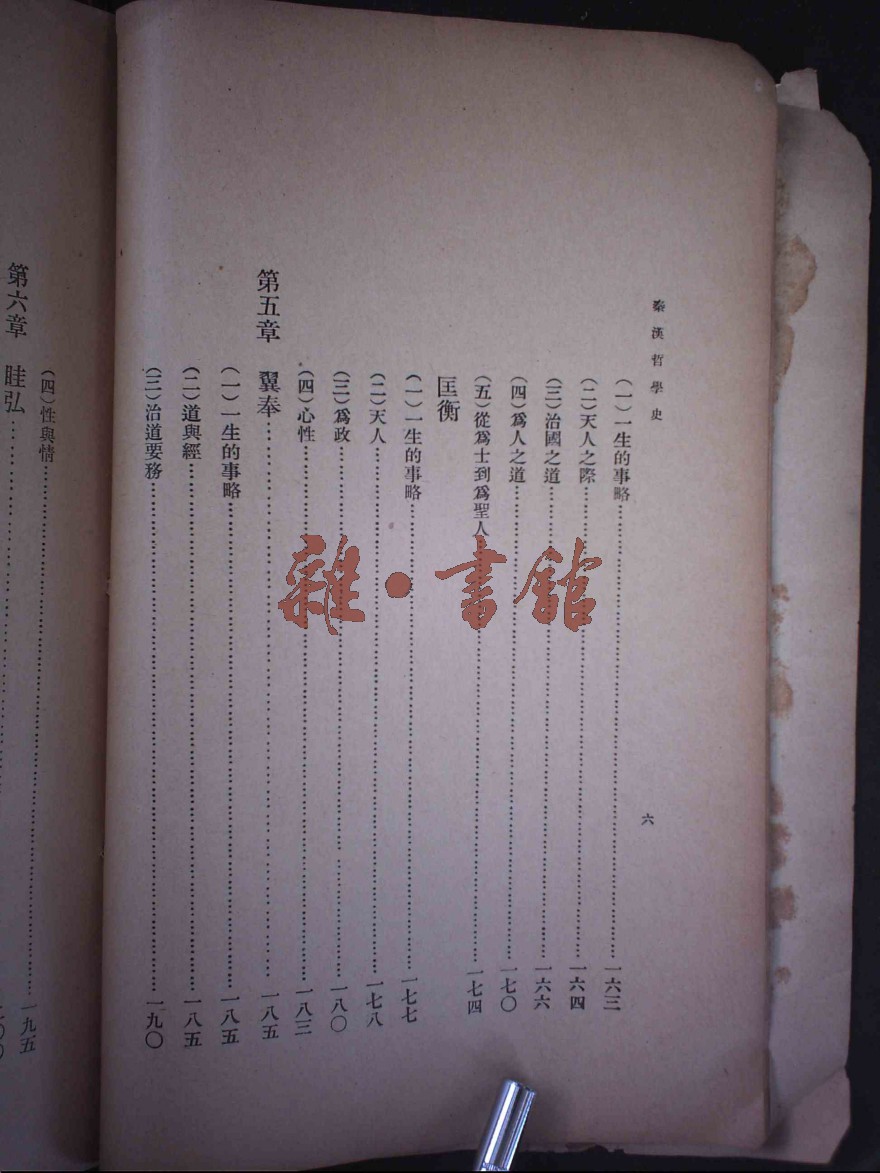 秦漢哲學史
六
(一)一生的事略……一六三
(二)天人之際……一六四
(三)治國之道……一六六
(四)爲人之道……一七〇
(五)從爲士到爲聖人……一七四
匡衡
(一)一生的事略……一七七
(二)天人……一七八
(三)爲政……一八〇
(四)心性……一八三
第五章 翼奉……一八五
(一)一生的事略……一八五
(二)道與經……一八五
(三)治道要務……一九〇
(四)性與情……一九五
第六章 眭弘……二〇〇
雜·書館